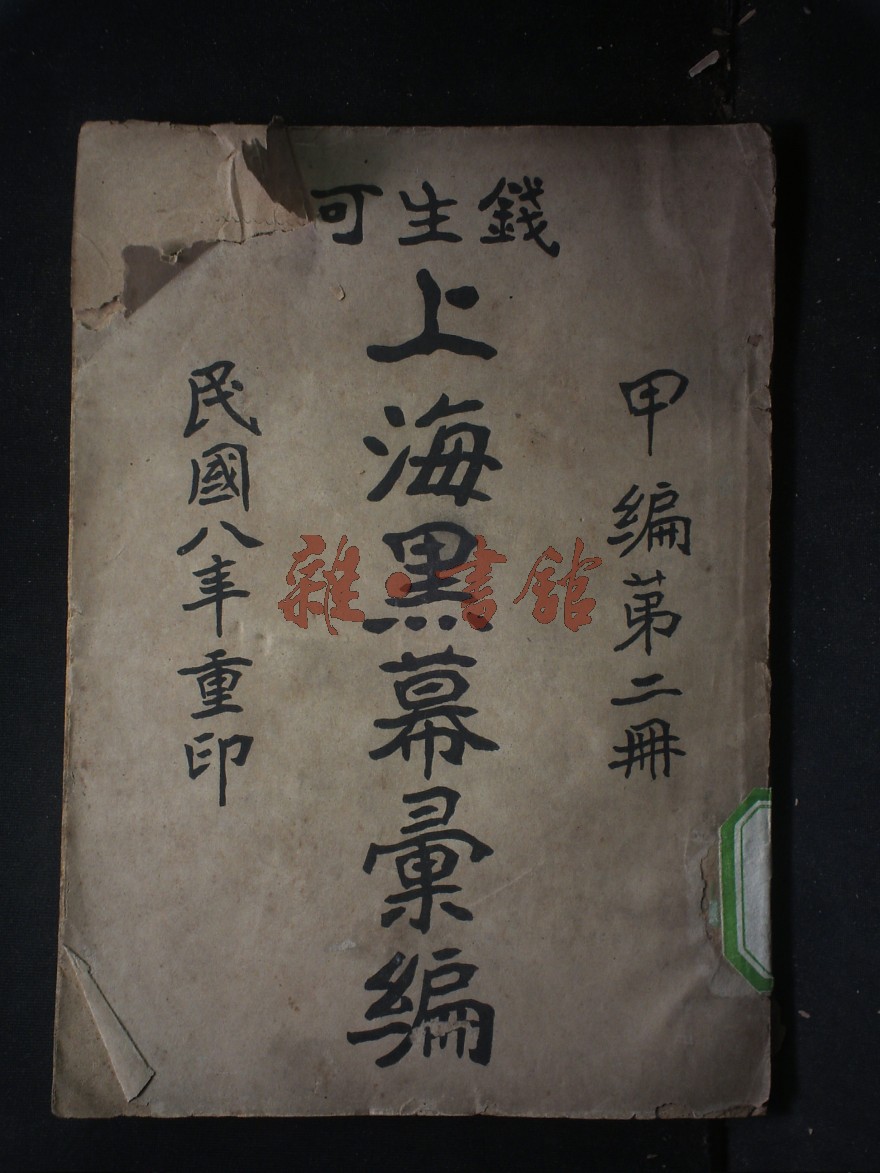 錢生可
甲編苐二冊
上海黑幕彙編
民國八年重印
雜·書館